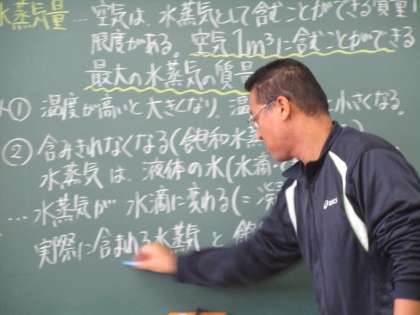 水蒸気量…空気は、水蒸気として含むことができる質量に
限度がある。空気1m³に含むことができる
最大の水蒸気の質量
① 温度が高いと大きくなり、温 小さくなる。
② 含みきれなくなる(飽和水蒸
水蒸気は、液体の水(水滴
…水蒸気が 水滴に変わる(=
実際に含まれる水蒸気と 飽
asics